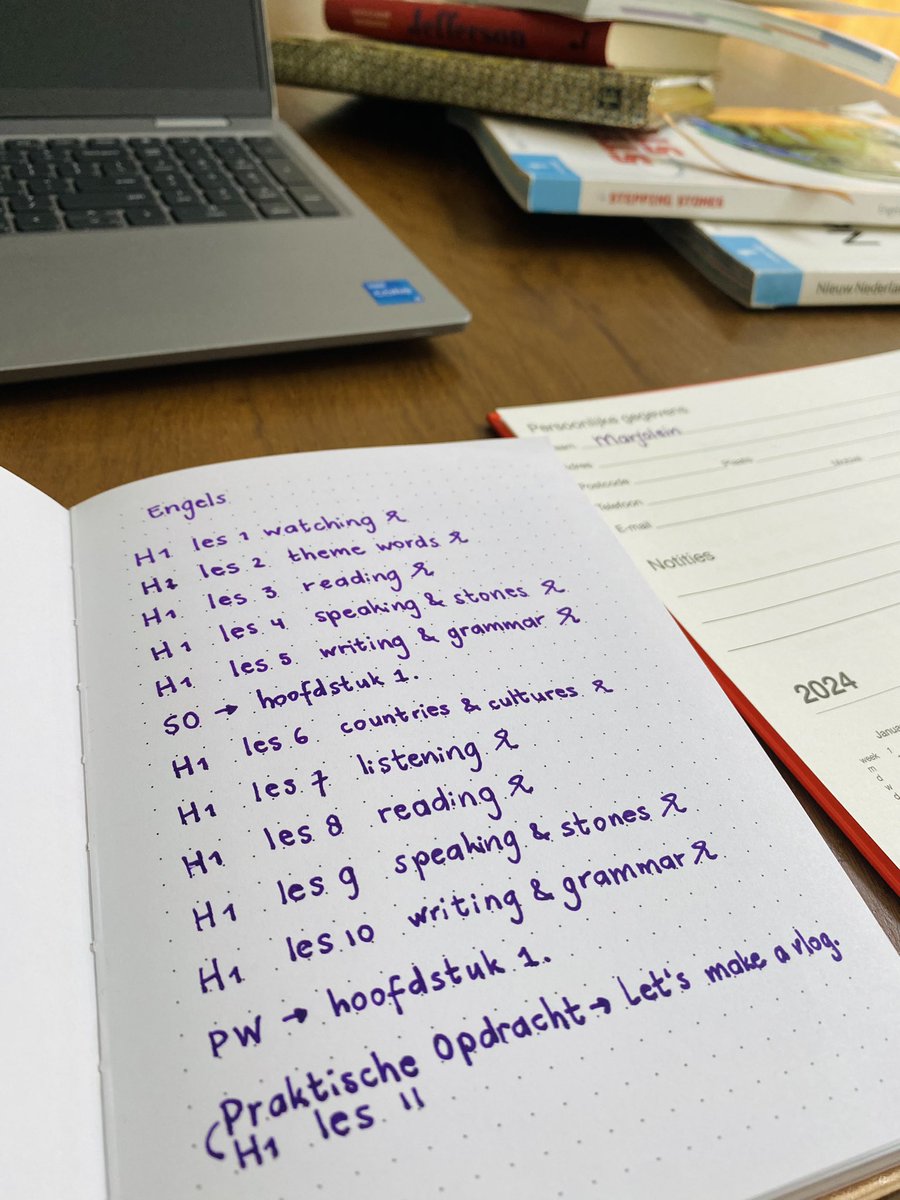 Jefferson
STEPPING STONES
Nieuw Nederla
Persoonlijke gegevens
Marjolein
Postcode
Plaats
Mobiel
Telefoon
E-mail
Notities
2024
Janua
week 1
m
d
w
d
Engels
H1 les 1 watching
H1 les 2 theme words
H1 les 3 reading
H1 les 4 speaking & stones
H1 les 5 writing & grammar
SO → hoofdstuk 1.
H1 les 6 countries & cultures
H1 les 7 listening
H1 les 8 reading
H1 les 9 speaking & stones
H1 les 10 writing & grammar
PW → hoofdstuk 1.
Praktische Opdracht → Let's make a vlog.
(H1 les 11